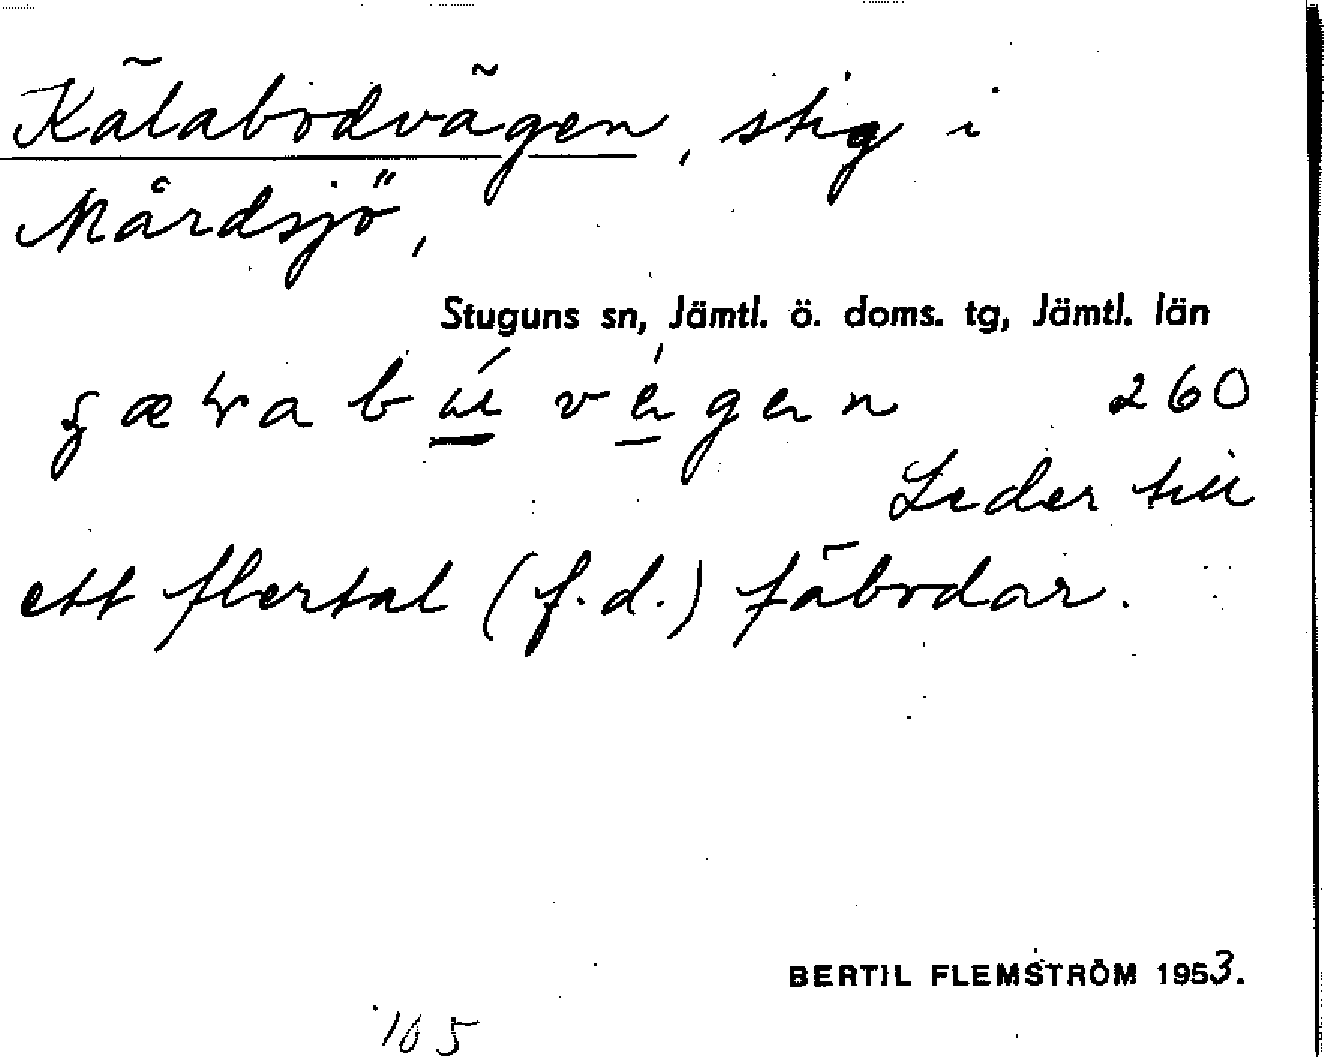 Kälabodvägen, stig i
Mårdsjö,
Stuguns sn, Jämtl. ö. doms. tg, Jämtl. län
260
Leder till
ett flertal (f.d.) fäbodar.
BERTIL FLEMSTRÖM 1953.
105